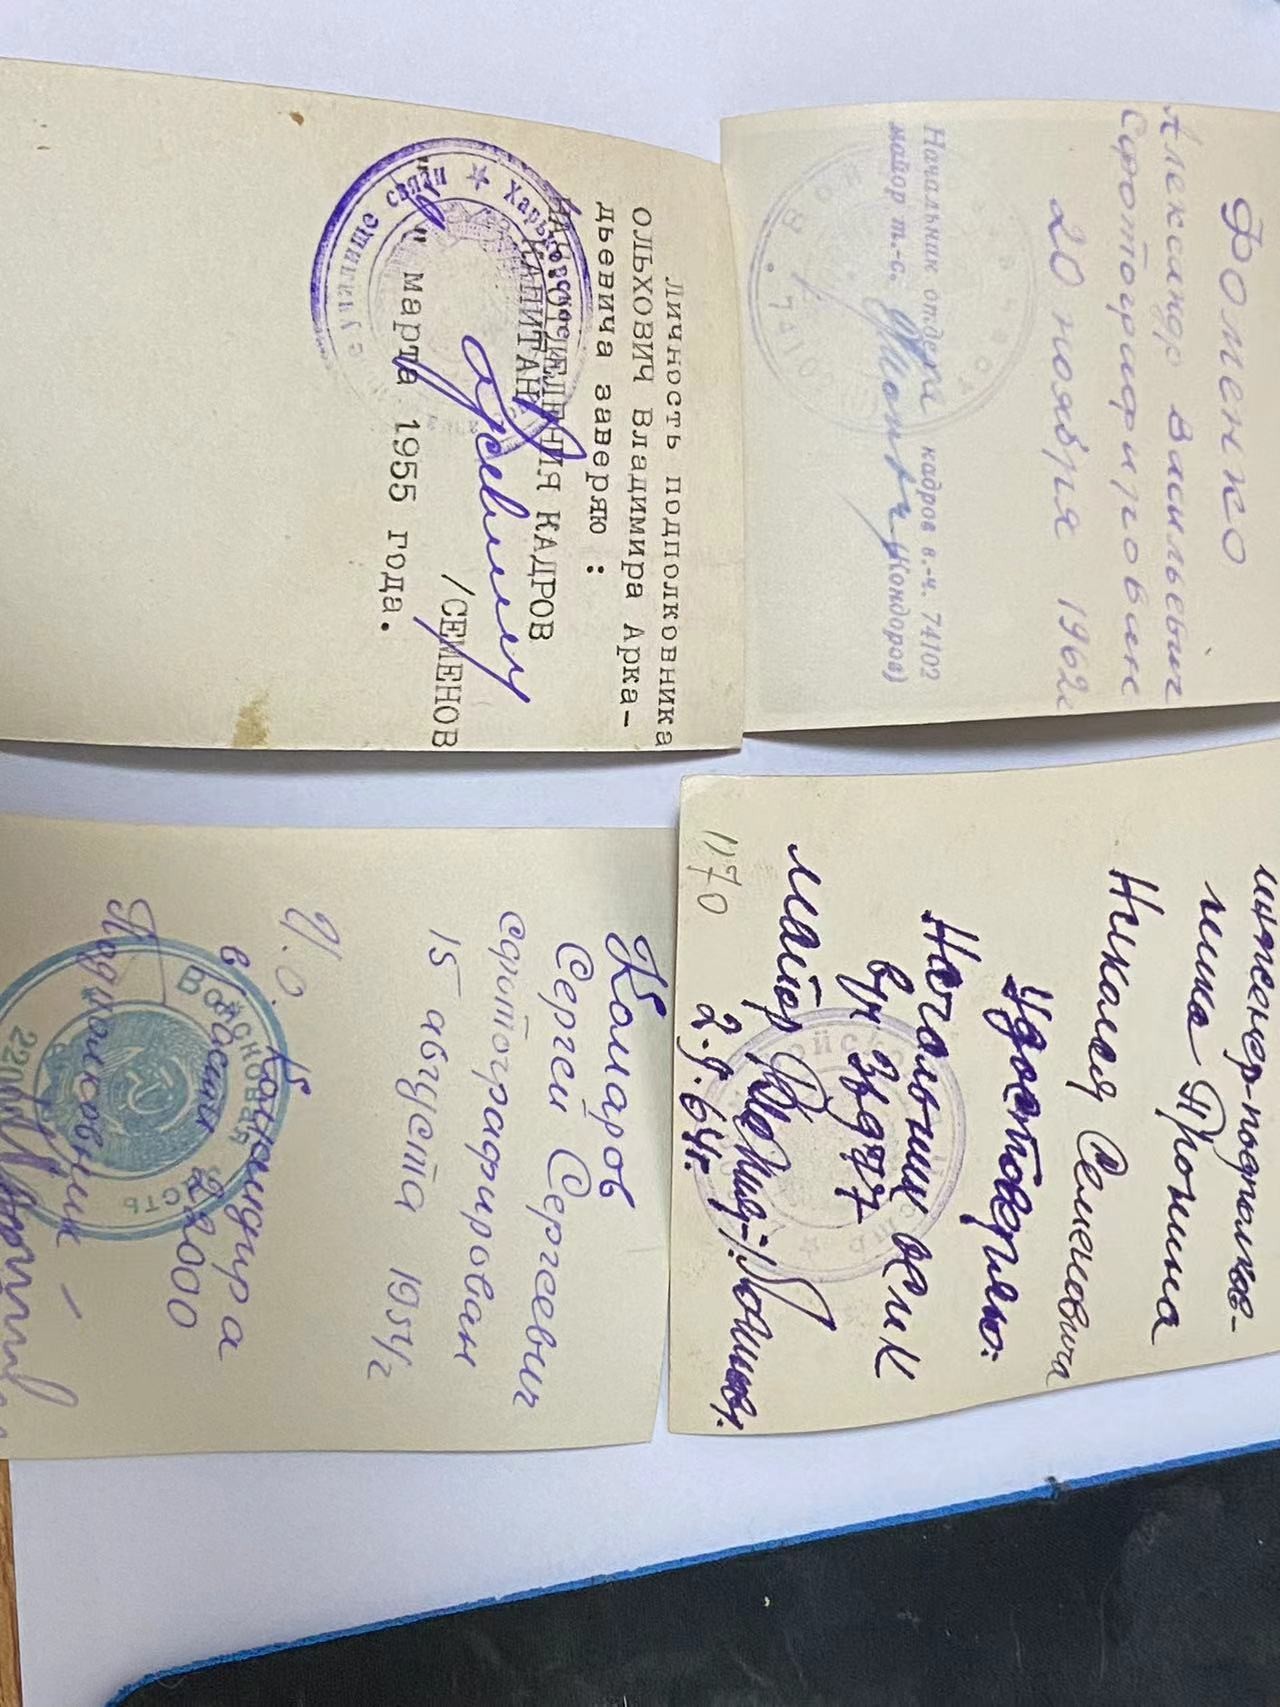 Фоменко
Александр Васильевич
Сфотографирован
20 ноября 1962г
Начальник отдела кадров в.-ч. 74102
майор т.-с. (Кондоров)
инженер-подполков-
ника Пронина
Николая Семеновича
Удостоверяю:
Начальник
майор
2.9.64г.
1170
Личность подполковника
ОЛЬХОВИЧ Владимира Арка-
дьевича заверяю :
НАЧ.ОТДЕЛЕНИЯ КАДРОВ
КАПИТАН
/СЕМЕНОВ
" " марта 1955 года.
Харьковское
училище связи
Комаров
Сергей Сергеевич
сфотографирован
15 августа 1954г
И.О. Командира
в/части 22000
Подполковник -
Войсковая часть